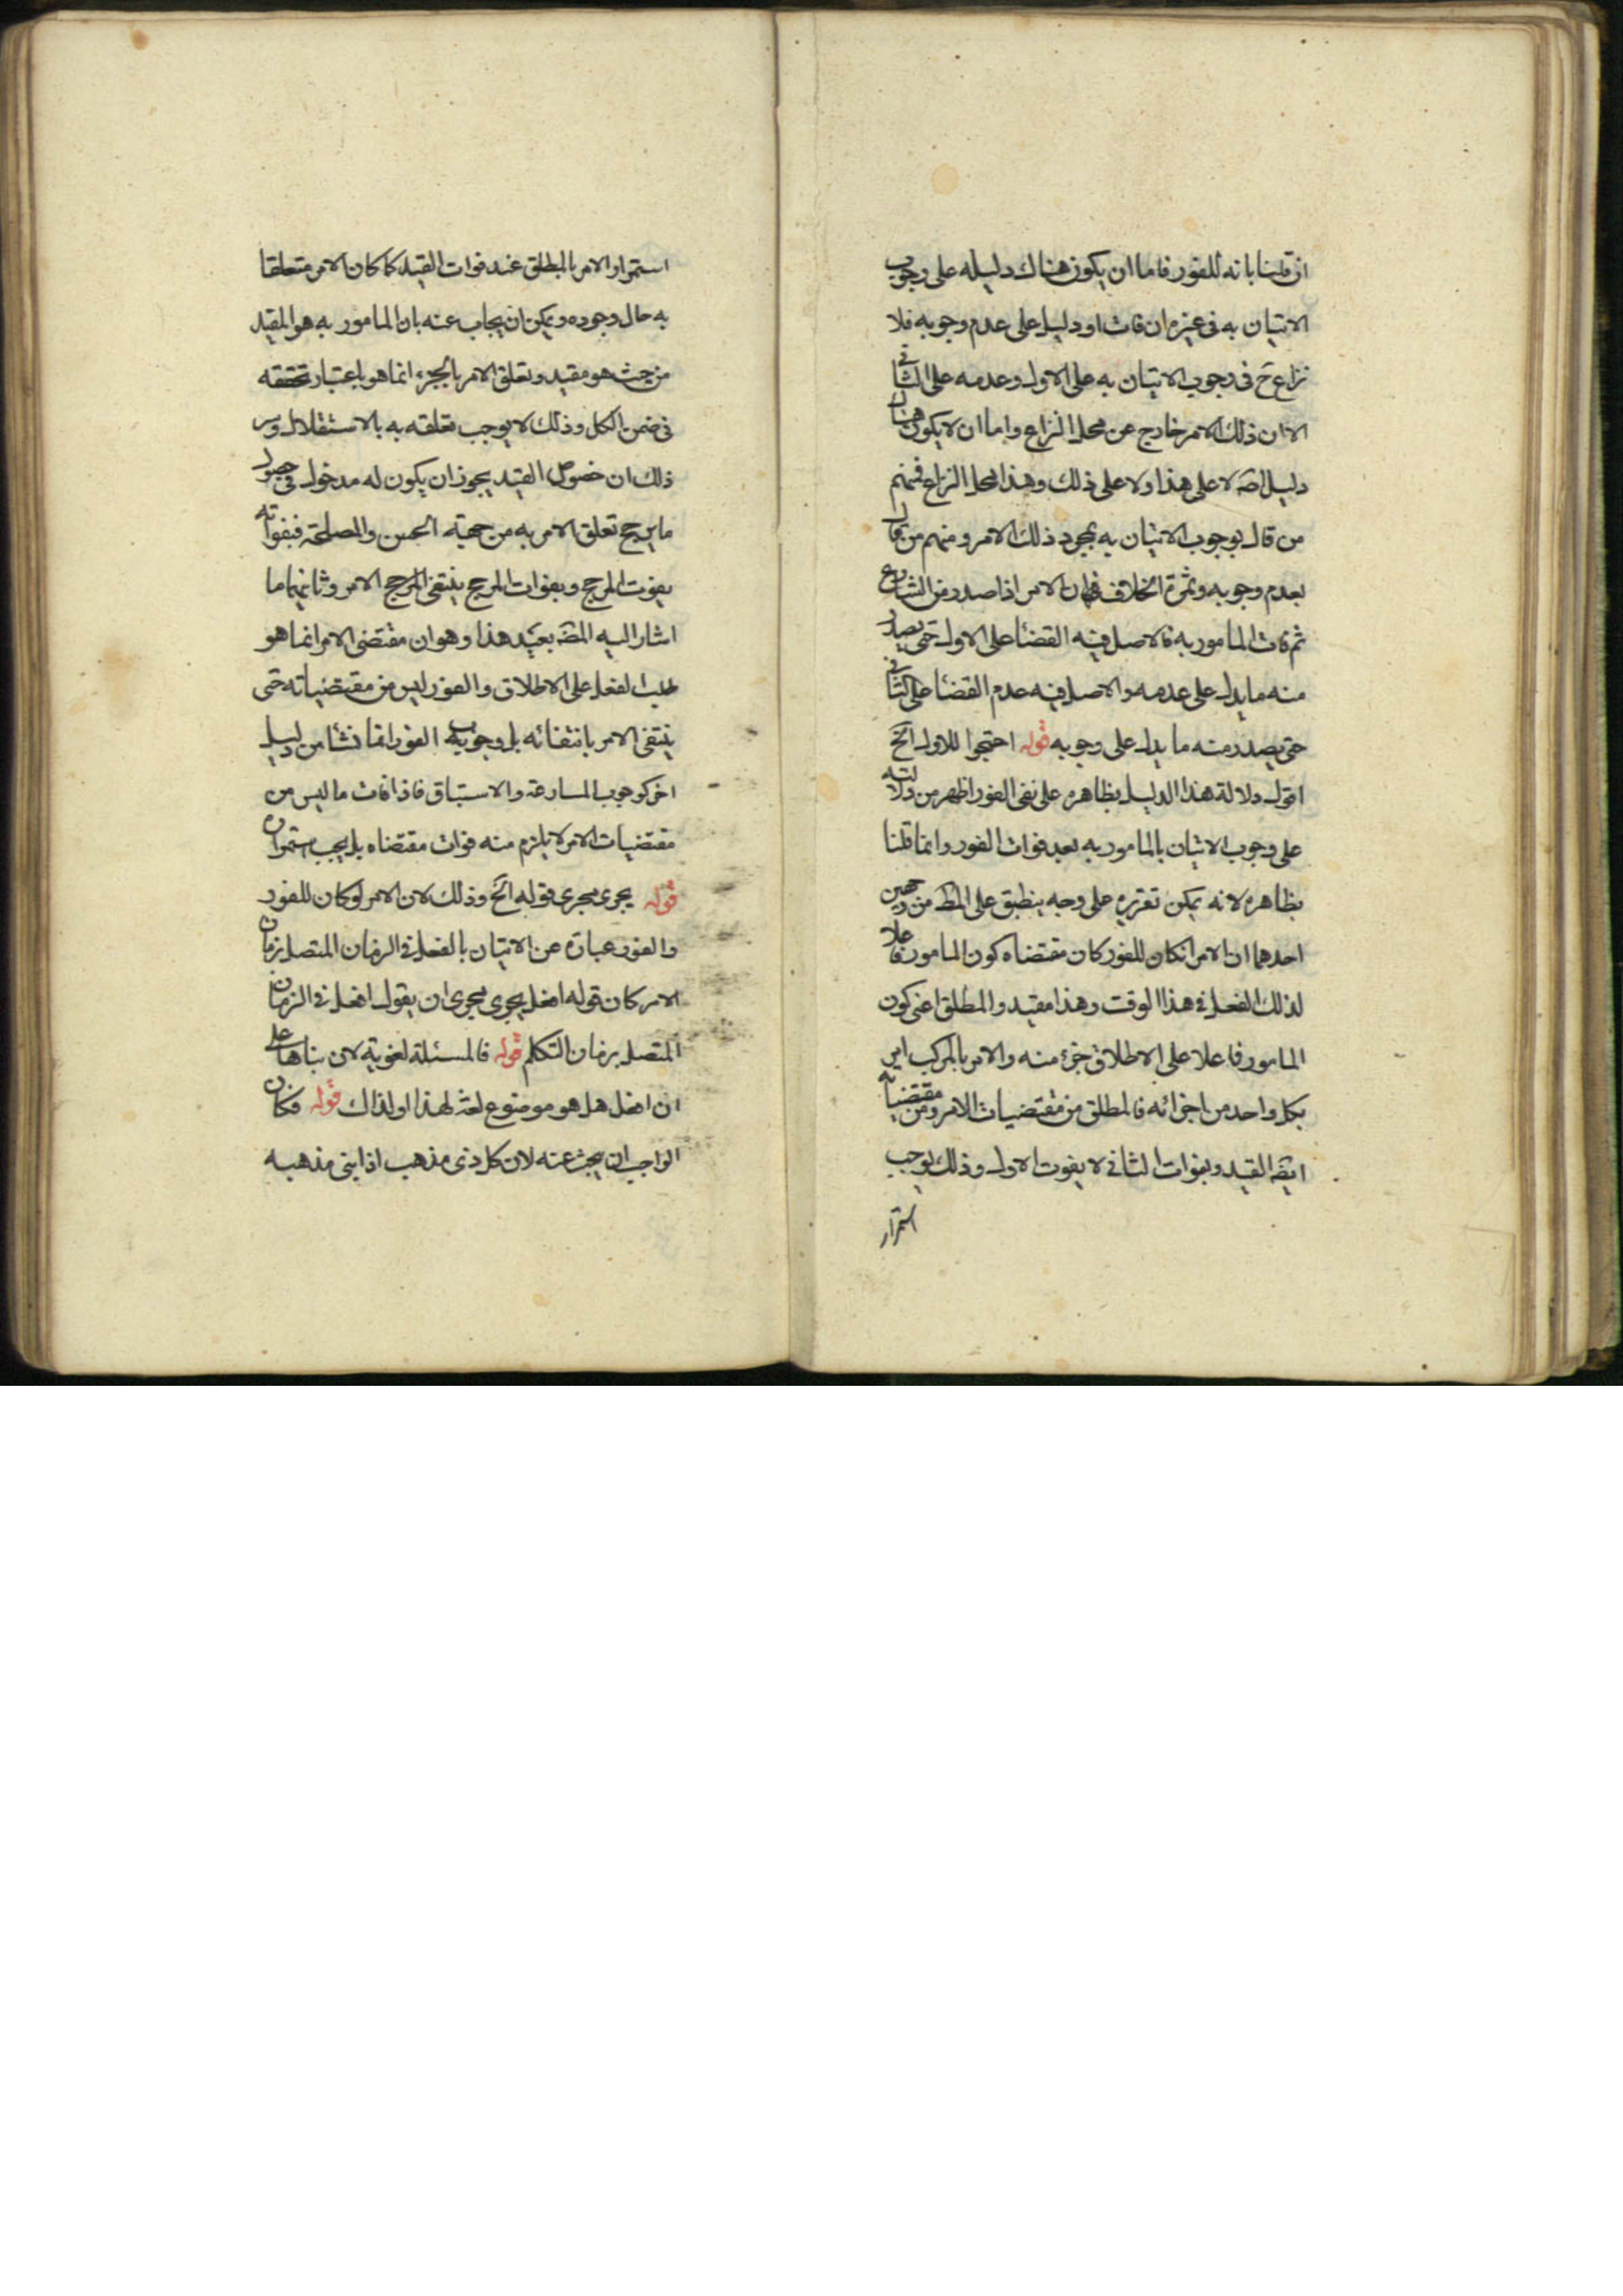 ان قلنا بانه للفور فاما ان يكون هناك دليله على وجوب
الاتيان به فى غيره ان فات او دليل على عدم وجوبه فلا
نزاع ح فى وجوب الاتيان به على الاول وعدمه على الثانى
الا ان ذلك الامر خارج عن محل النزاع واما ان لا يكون هناك
دليل اصلا لا على هذا ولا على ذلك وهذا محل النزاع فمنهم
من قال بوجوب الاتيان به بمجرد ذلك الامر ومنهم من قال
بعدم وجوبه وثمرة الخلاف فى ان الامر اذا صدر من الشارع
ثم فات المامور به فالاصل فيه القضا على الاول حتى يصدر
منه ما يدل على عدمه والاصل فيه عدم القضا على الثانى
حتى يصدر منه ما يدل على وجوبه قوله احتجوا للاول الخ
اقول دلالة هذا الدليل بظاهره على نفى الفور اظهر من دلالته
على وجوب الاتيان بالمامور به بعد فوات الفور وانما قلنا
بظاهره لانه يمكن تقريره على وجه ينطبق على المط من وجهين
احدهما ان الامر انكان للفور كان مقتضاه كون المامور فاعلا
لذلك الفعل فى هذا الوقت وهذا مقيد والمطلق اعنى كون
المامور فاعلا على الاطلاق جزء منه والامر بالمركب امر
بكل واحد من اجزائه فالمطلق من مقتضيات الامر ومن مقتضياته
ايضا القيد وبفوات الثانى لا يفوت الاول وذلك يوجب
استمرار
استمرار الامر بالمطلق عند فوات القيد كما كان الامر متعلقا
به حال وجوده ويمكن ان يجاب عنه بان المامور به هو المقيد
من حيث هو مقيد وتعلق الامر بالجزء انما هو باعتبار تحققه
فى ضمن الكل وذلك لا يوجب تعلقه به بالاستقلال وسر
ذلك ان خصوص القيد يجوز ان يكون له مدخل فى حصول
ما يرجح تعلق الامر به من جهته الحسن والمصلحة فبفواته
يفوت المرجح وبفوات المرجح ينتفى الامر وثانيهما ما
اشار اليه المص بعيد هذا وهو ان مقتضى الامر انما هو
طلب الفعل على الاطلاق والفور ليس من مقتضياته حتى
ينتفى الامر بانتفائه بل وجوب الفور انما نشا من دليل
اخر كوجوب المسارعة والاستباق فاذا فات ما ليس من
مقتضيات الامر لا يلزم منه فوات مقتضاه بل يجب استمراره
قوله يجرى مجرى قوله الخ وذلك لان الامر لو كان للفور
والفور عبارة عن الاتيان بالفعل فى الزمان المتصل بزمان
الامر كان قوله افعل يجرى مجرى ان يقول افعل فى الزمان
المتصل بزمان التكلم قوله فالمسئلة لغوية لان بناها على
ان افعل هل هو موضوع لغة لهذا او لذاك قوله فكان
الواجب ان يبحث عنه لان كل ذى مذهب اذا بنى مذهبه